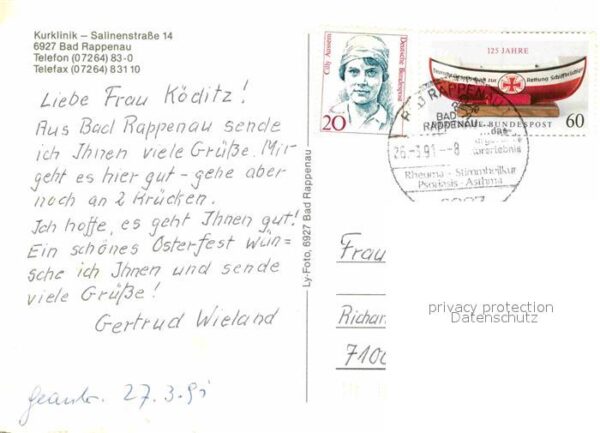 Kurklinik – Salinenstraße 14
6927 Bad Rappenau
Telefon (07264) 83-0
Telefax (07264) 83110
Liebe Frau Köditz!
Aus Bad Rappenau sende
ich Ihnen viele Grüße. Mir
geht es hier gut - gehe aber
noch an 2 Krücken.
Ich hoffe, es geht Ihnen gut!
Ein schönes Osterfest wün-
sche ich Ihnen und sende
viele Grüße!
Gertrud Wieland
geantw. 27.3.91
Ly-Foto, 6927 Bad Rappenau
Cilly Aussem
Deutsche Bundespost
20
125 JAHRE
Rettung Schiffbrüchiger
BUNDESPOST
60
BAD RAPPENAU
BAD
RAPPENAU
das
26.-3.91.--8
Rheuma - Stimmheilkur
Psoriasis - Asthma
6927
Frau
Richar
7100
privacy protection
Datenschutz